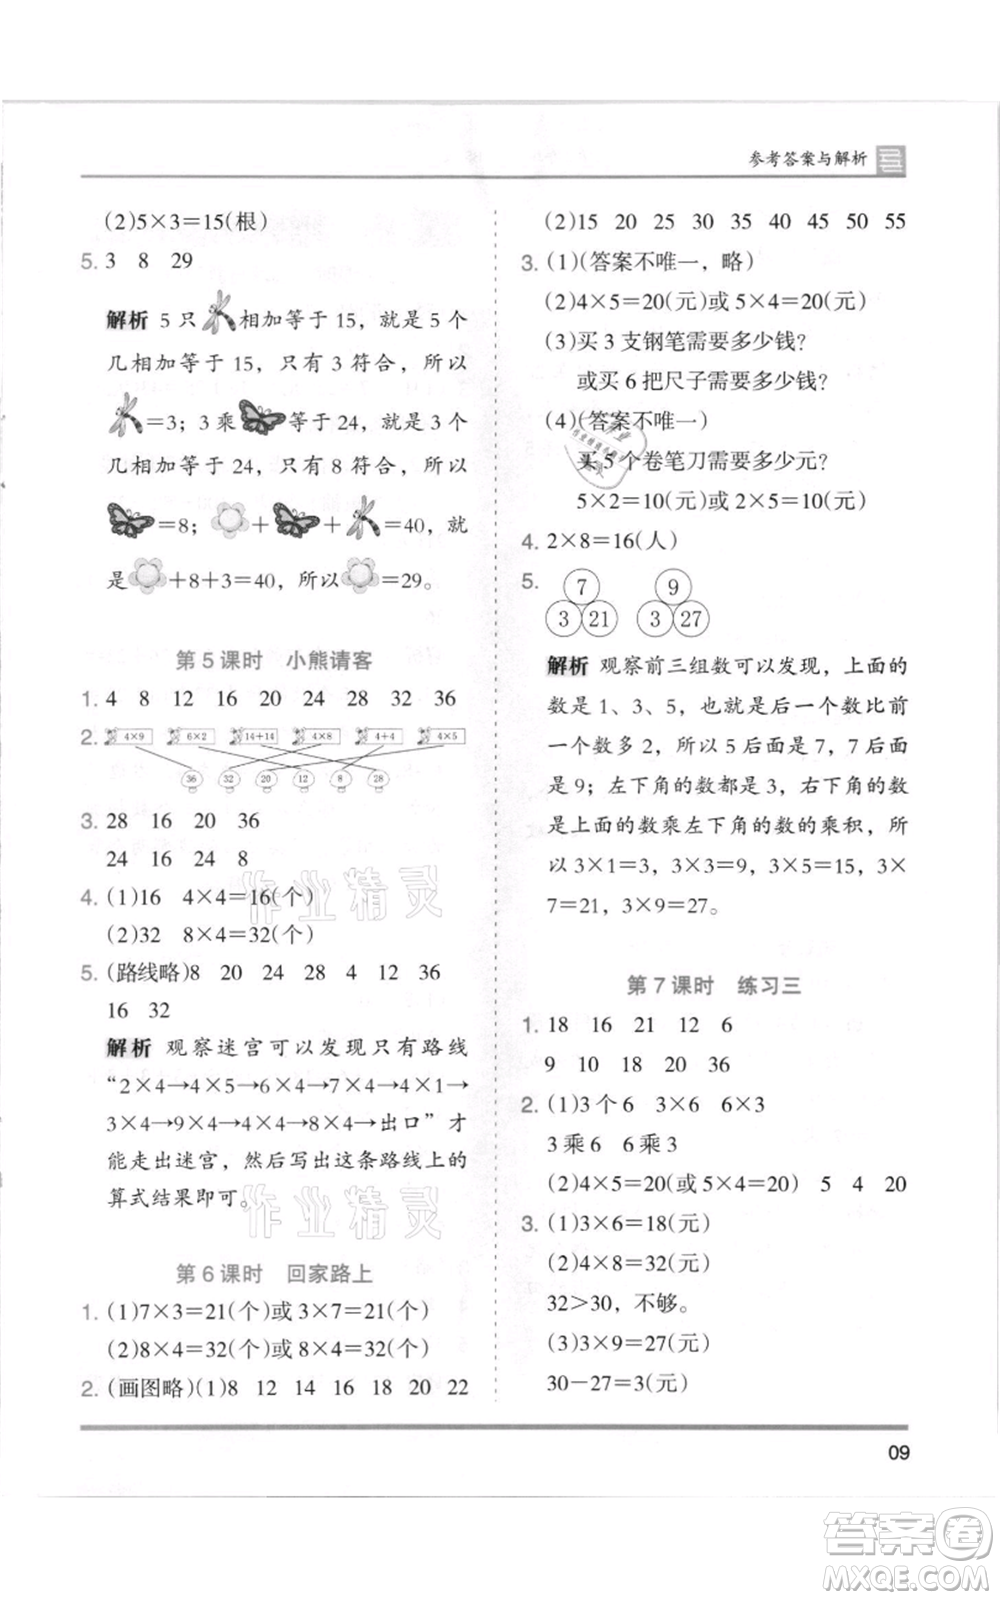 参考答案与解析
(2)5×3=15(根)
5. 3 8 29
解析 5只 相加等于15，就是5个
几相加等于15，只有3符合，所以
=3；3乘 等于24，就是3个
几相加等于24，只有8符合，所以
=8； + + =40，就
是 +8+3=40，所以 =29。
第5课时 小熊请客
1. 4 8 12 16 20 24 28 32 36
2. 4×9 6×2 14+14 4×8 4+4 4×5
36 32 20 12 8 28
3. 28 16 20 36
24 16 24 8
4. (1)16 4×4=16(个)
(2)32 8×4=32(个)
5. (路线略)8 20 24 28 4 12 36
16 32
解析 观察迷宫可以发现只有路线
“2×4→4×5→6×4→7×4→4×1→
3×4→9×4→4×4→8×4→出口”才
能走出迷宫，然后写出这条路线上的
算式结果即可。
第6课时 回家路上
1. (1)7×3=21(个)或3×7=21(个)
(2)8×4=32(个)或4×8=32(个)
2. (画图略)(1)8 12 14 16 18 20 22
(2)15 20 25 30 35 40 45 50 55
3. (1)(答案不唯一，略)
(2)4×5=20(元)或5×4=20(元)
(3)买3支钢笔需要多少钱？
或买6把尺子需要多少钱？
(4)(答案不唯一)
买5个卷笔刀需要多少元？
5×2=10(元)或2×5=10(元)
4. 2×8=16(人)
5. 7 9
3 21 3 27
解析 观察前三组数可以发现，上面的
数是1、3、5，也就是后一个数比前
一个数多2，所以5后面是7，7后面
是9；左下角的数都是3，右下角的数
是上面的数乘左下角的数的乘积，所
以3×1=3，3×3=9，3×5=15，3×
7=21，3×9=27。
第7课时 练习三
1. 18 16 21 12 6
9 10 18 20 36
2. (1)3个6 3×6 6×3
3乘6 6乘3
(2)4×5=20(或5×4=20) 5 4 20
3. (1)3×6=18(元)
(2)4×8=32(元)
32>30，不够。
(3)3×9=27(元)
30-27=3(元)
09
作业精灵
作业精灵
答案圈
MXQE.COM